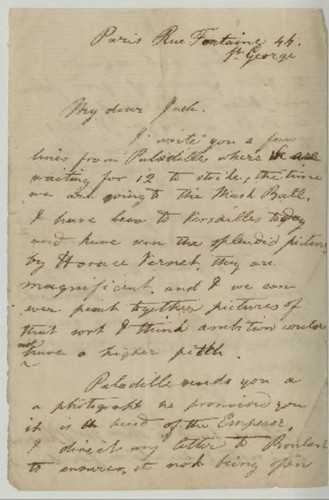 Paris Rue Fontaine 44.
St. George
My dear Jack.
I write you a few
lines from Paladilles where we are
waiting for 12 to strike, the time
we are going to the Mask Ball.
I have been to Versailles today
and have seen the splendid pictures
by Horace Vernet. they are
magnificent. and if we can
ever paint together pictures of
that sort I think ambition could
not
have a higher pitch.
Paladille sends you a
a photograph he promised you
it is head of the Emperor.
I direct my letter to
to its not being open